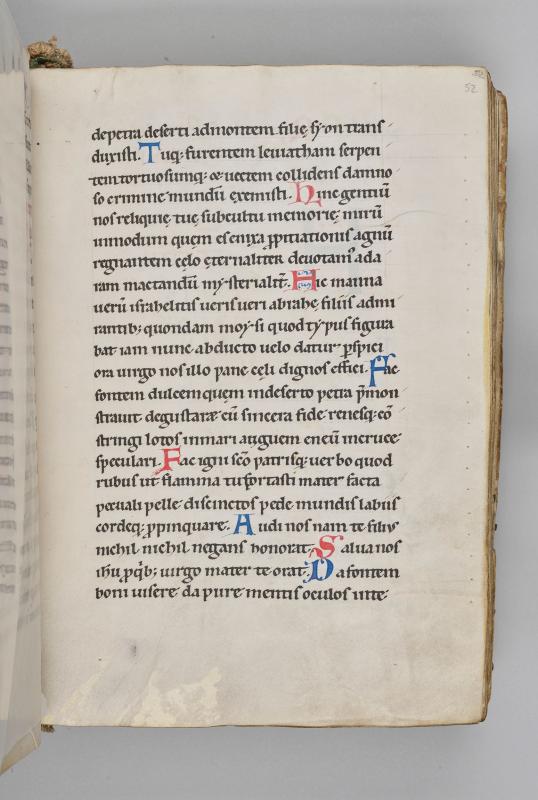 52
de petra deserti ad montem filie syon trans
duxisti. Tuq; furentem leviatham serpen
tem tortuosumq; & vectem collidens damno
so crimine mundū exemisti. Hinc gentiū
nos reliquie tue sub cultu memorie mirū
inmodum quem es enixa ppitiationis agnū
regnantem celo eternaliter devotam' ad a
ram mactandū mysterialit. Hic manna
verū israhelitis veris veri abrahe filiis admi
rantib; quondam moysi quod typus figura
bat iam nunc abducto velo datur pspici
ora virgo nos illo pane celi dignos effici. Fac
fontem dulcem quem in deserto petra pmon
stravit degustare cū sincera fide renesq; cō
stringi lotos in mari anguem eneū in cruce
speculari. Fac igni scō patrisq; verbo quod
rubus ut flamma tu portasti mater facta
pecuali pelle discinctos pede mundis labiis
cordeq; ppinquare. Audi nos nam te filius
nichil nichil negans honorat; Salva nos
ihū p qb; virgo mater te orat; Da fontem
boni visere da pure mentis oculos in te